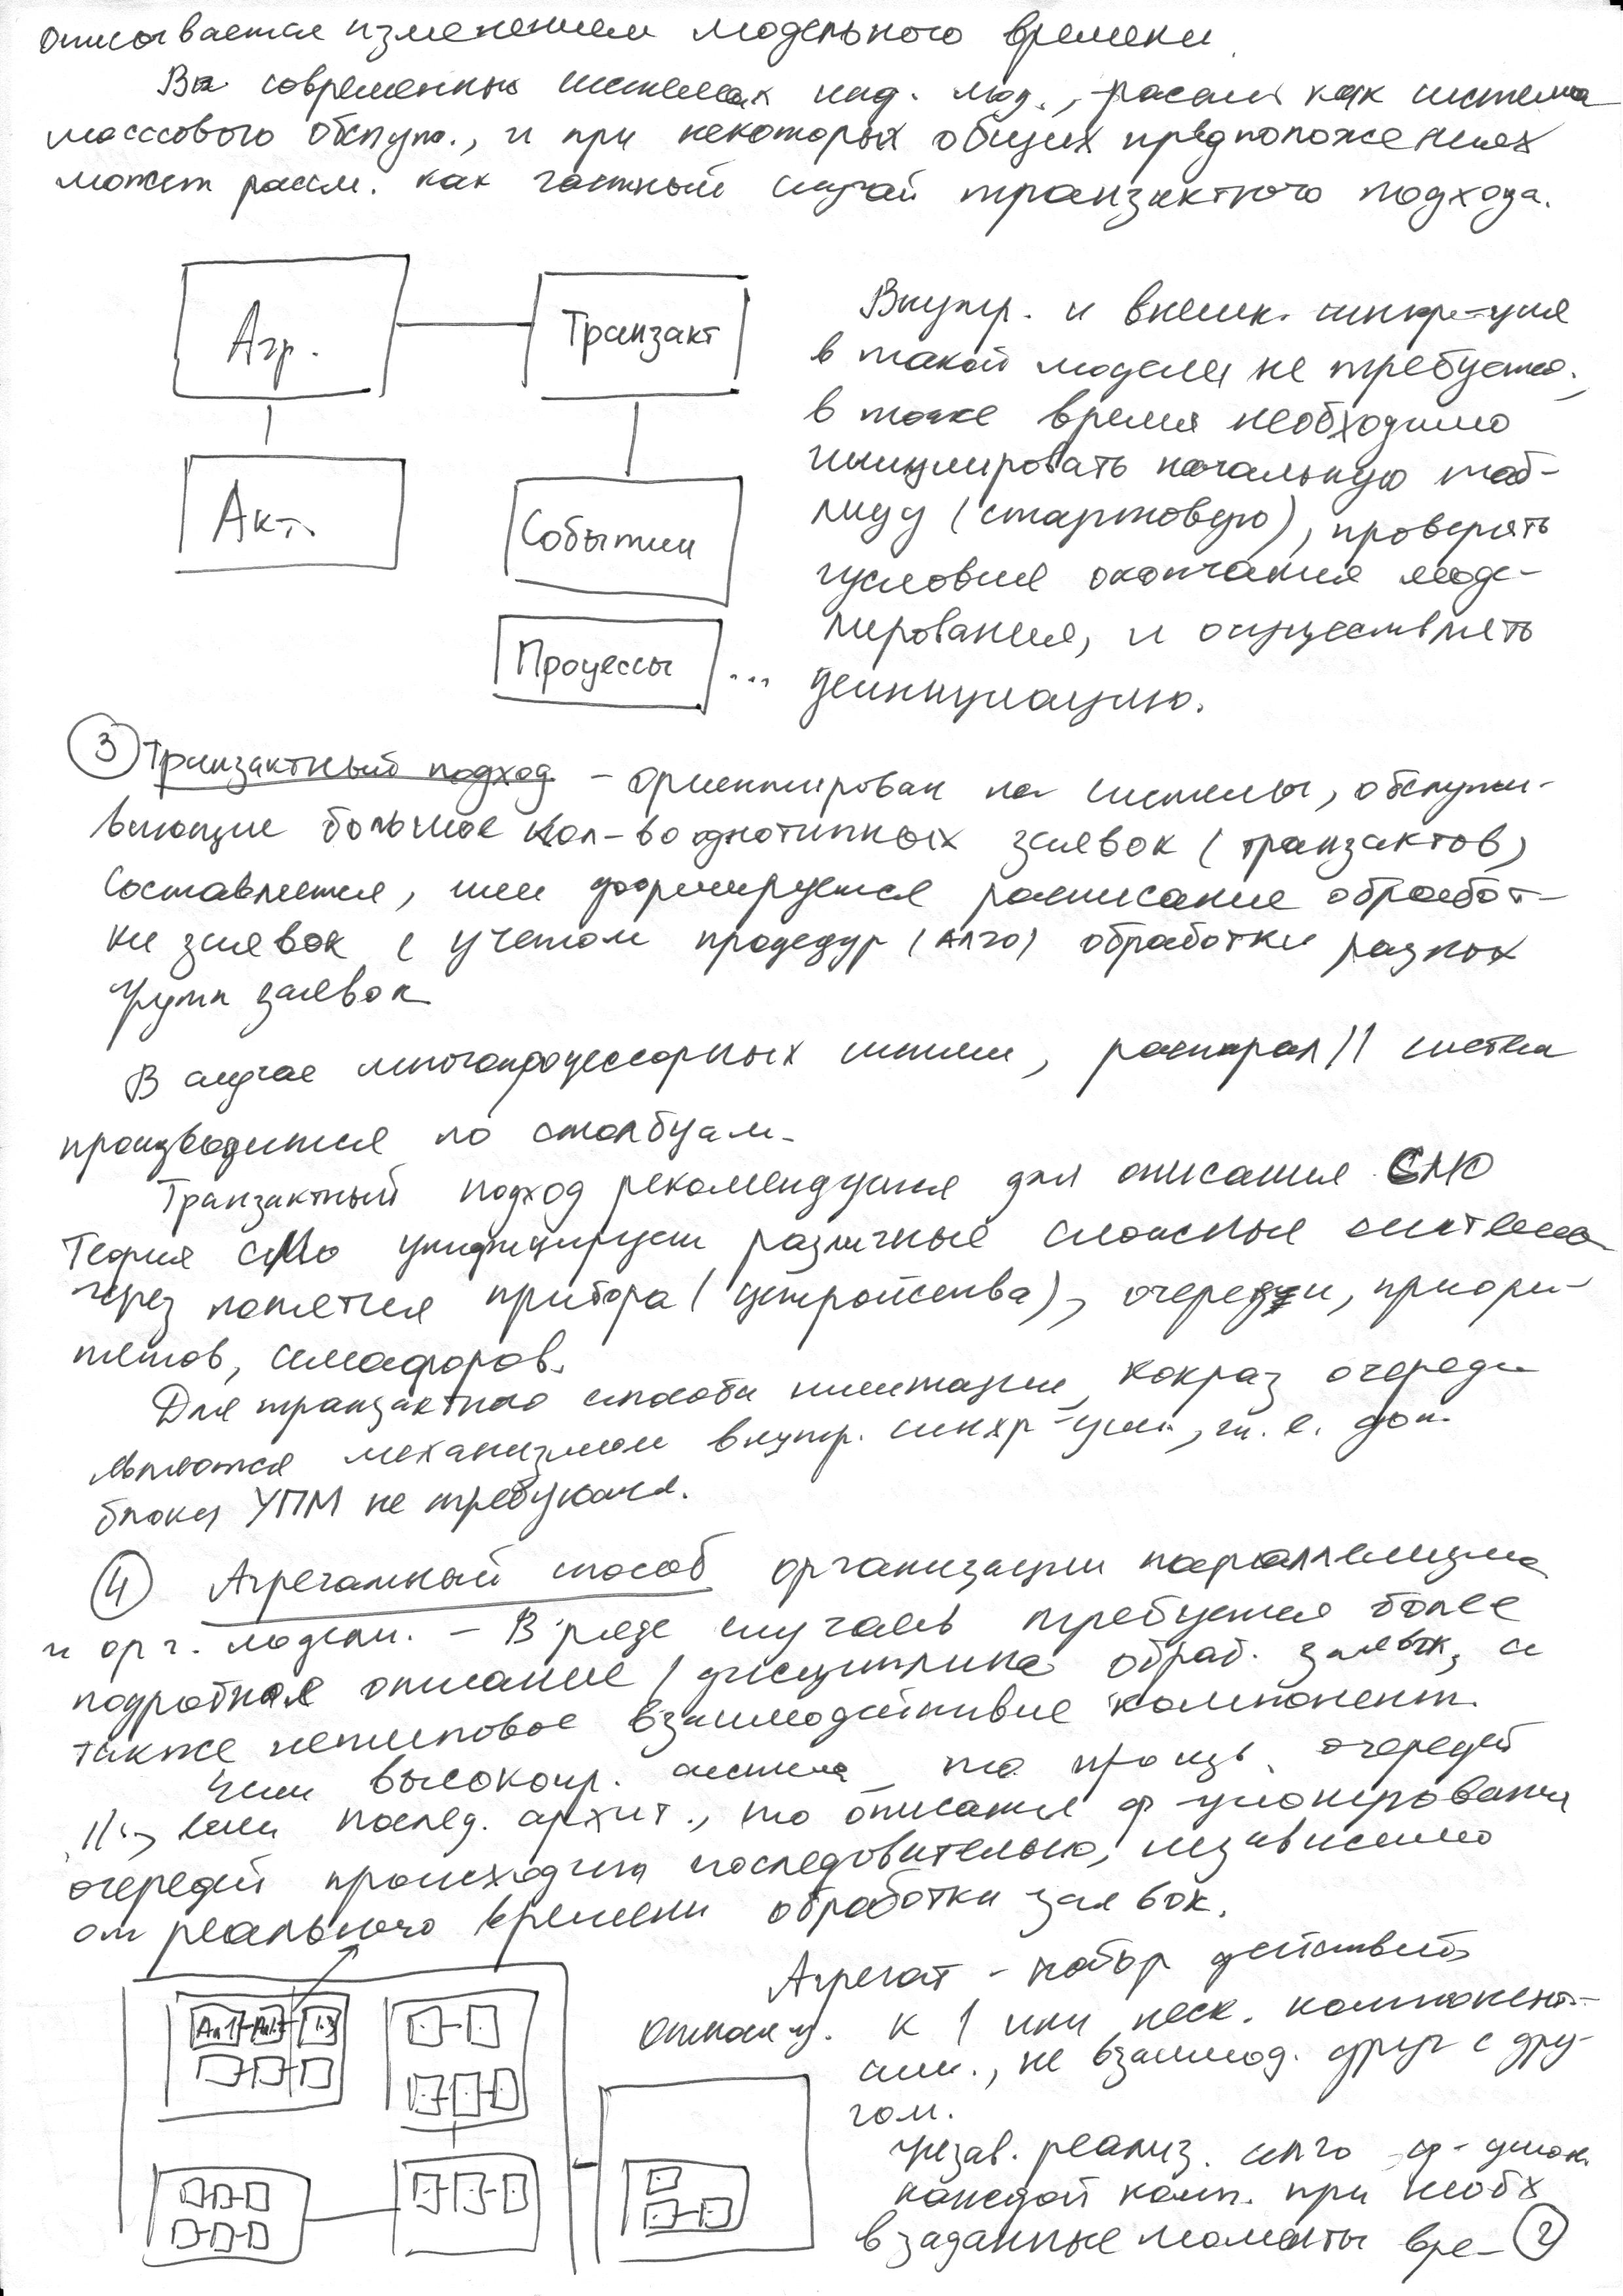 описывается изменением модельного времени.
В современных системах имд. мод., рассм. как система
массового обслуж., и при некоторых общих предположениях
может рассм. как частный случай транзактного подхода.
Агр.
Транзакт
Акт.
События
Процессы ...
Внутр. и внешн. синхр-ция
в такой модели не требуется,
в тоже время необходимо
инициировать начальную таб-
лицу (стартовую), проверять
условия окончания моде-
лирования, и осуществлять
③ Транзактный подход - ориентирован на системы, обслужи-
вающие большое кол-во однотипных заявок (транзактов)
Составляется, или формируется расписание обработ-
ки заявок с учетом процедур (алго) обработки разных
групп заявок
В случае многопроцессорных систем, распарал// систем
производится по столбцам.
Транзактный подход рекомендуется для описания СМО
Теория СМО унифицирует различные сложные системы
через понятия прибора (устройства), очереди, приори-
тетов, семафоров.
Для транзактного способа имитации, какраз очереди
являются механизмом внутр. синхр-ции, т.е. доп.
блоки УПМ не требуются.
④ Агрегатный способ организации параллелизма
и орг. модели. - В ряде случаев требуется более
подробное описание / дисциплина обраб. заявок, а
также нетиповое взаимодействие компонент.
Если высокопр. система то произв. очередей
//, если послед. архит., то описание ф-ционирования
очередей происходит последовательно, независимо
от реального времени обработки заявок.
Агрегат - набор действий
относящ. к 1 или неск. компонент-
ам., не взаимод. друг с дру-
гом.
незав. реализ. алго ф-цион.
каждой комп. при необх
в заданные моменты вре- ②